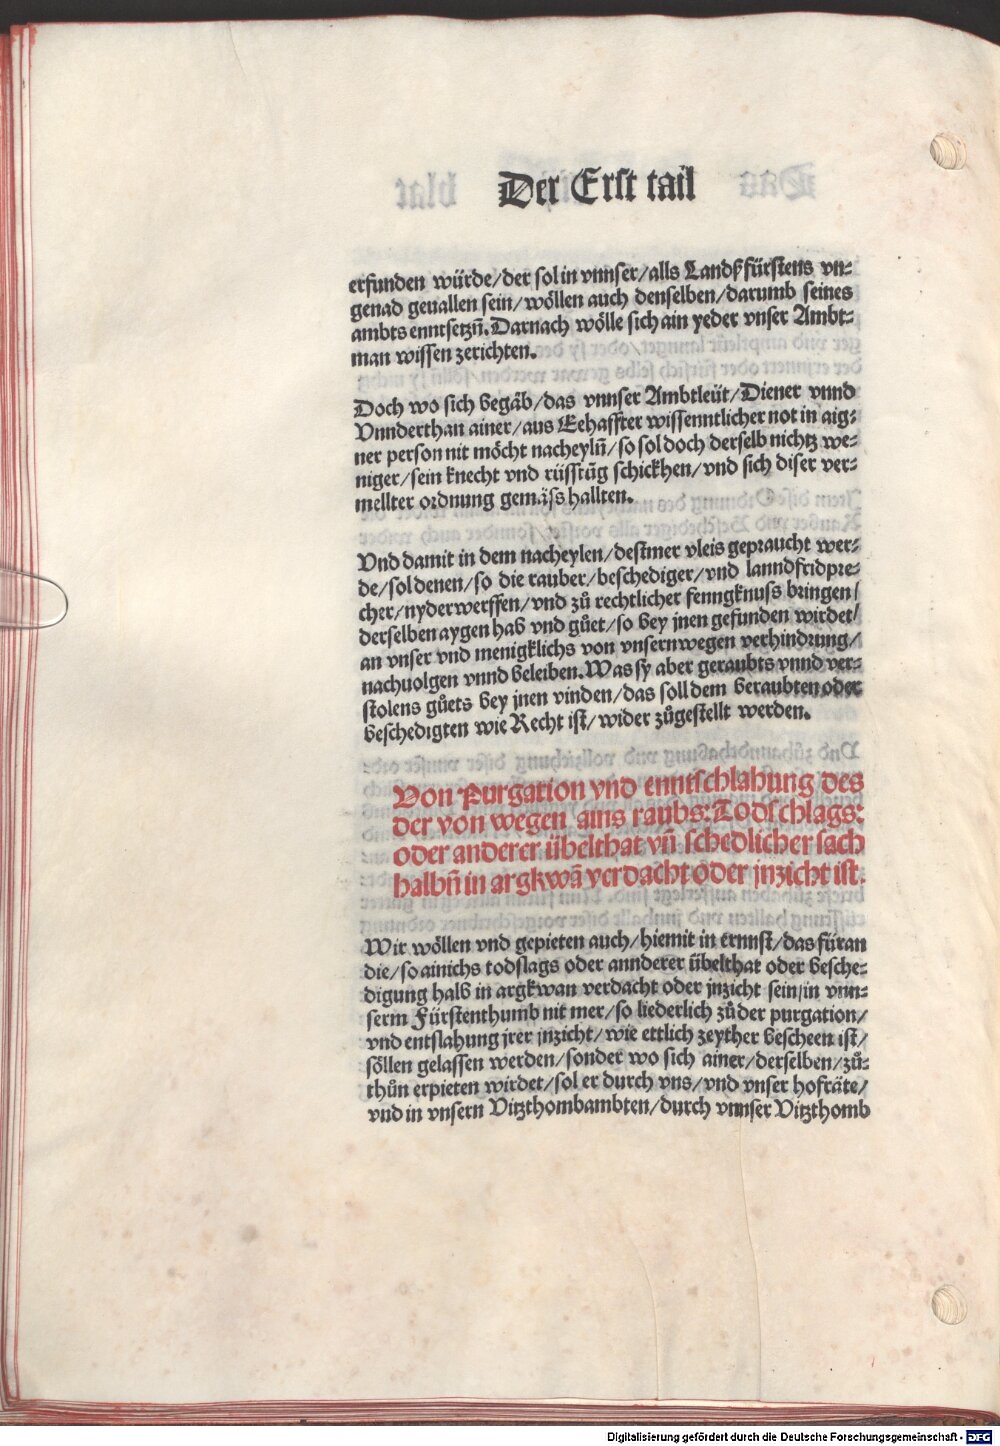 Der Erst tail
erfunden würde/der sol in vnnser/alls Landßfürstens vn-
genad geuallen sein/wöllen auch denselben/darumb seines
ambts enntsetzñ. Darnach wölle sich ain yeder vnser Ambt-
man wissen zerichten.
Doch wo sich begäb/das vnnser Ambtleüt/Diener vnnd
Vnnderthan ainer/aus Eehaffter wissenntlicher not in aig-
ner person nit möcht nacheylñ/so sol doch derselb nichtz we-
niger/sein knecht vnd rüsstũg schickhen/vnd sich diser ver-
mellter ordnung gemäss hallten.
Vnd damit in dem nacheylen/destmer vleis gepraucht wer-
de/sol denen/so die rauber/beschediger/vnd lanndfridpre-
cher/nyderwerffen/vnd zů rechtlicher fenngknuss bringen/
derselben aygen hab vnd gůet/so bey jnen gefunden wirdet/
an vnser vnd menigklichs von vnsernwegen verhindrung/
nachuolgen vnnd beleiben. Was sy aber geraubts vnnd ver-
stolens gůets bey jnen vinden/das soll dem beraubten oder
beschedigten wie Recht ist/wider zůgestellt werden.
Von Purgation vnd enntschlahung des
der von wegen ains raubs: Todschlags:
oder anderer übelthat vñ schedlicher sach
halbñ in argkwã verdacht oder jnzicht ist.
Wir wöllen vnd gepieten auch/hiemit in ernnst/das füran
die/so ainichs todslags oder annderer übelthat oder besche-
digung halb in argkwan verdacht oder jnzicht sein/in vnn-
serm Fürstenthumb nit mer/so liederlich zů der purgation/
vnd entslahung jrer jnzicht/wie ettlich zeyther bescheen ist/
söllen gelassen werden/sonder wo sich ainer/derselben/zů-
thůn erpieten wirdet/sol er durch vns/vnd vnser hofräte/
vnd in vnsern Vitzthombambten/durch vnnser Vitzthomb
Digitalisierung gefördert durch die Deutsche Forschungsgemeinschaft - DFG